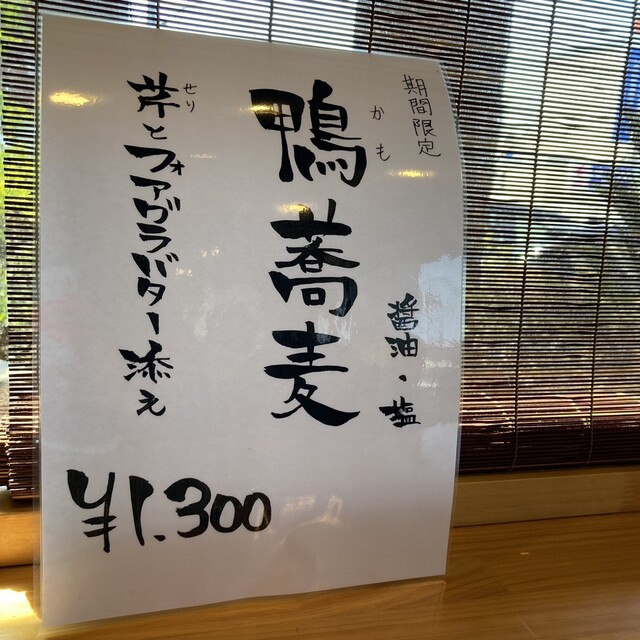 期間限定
鴨蕎麦
かも
醤油・塩
芹とフォアグラバター添え
せり
¥1.300